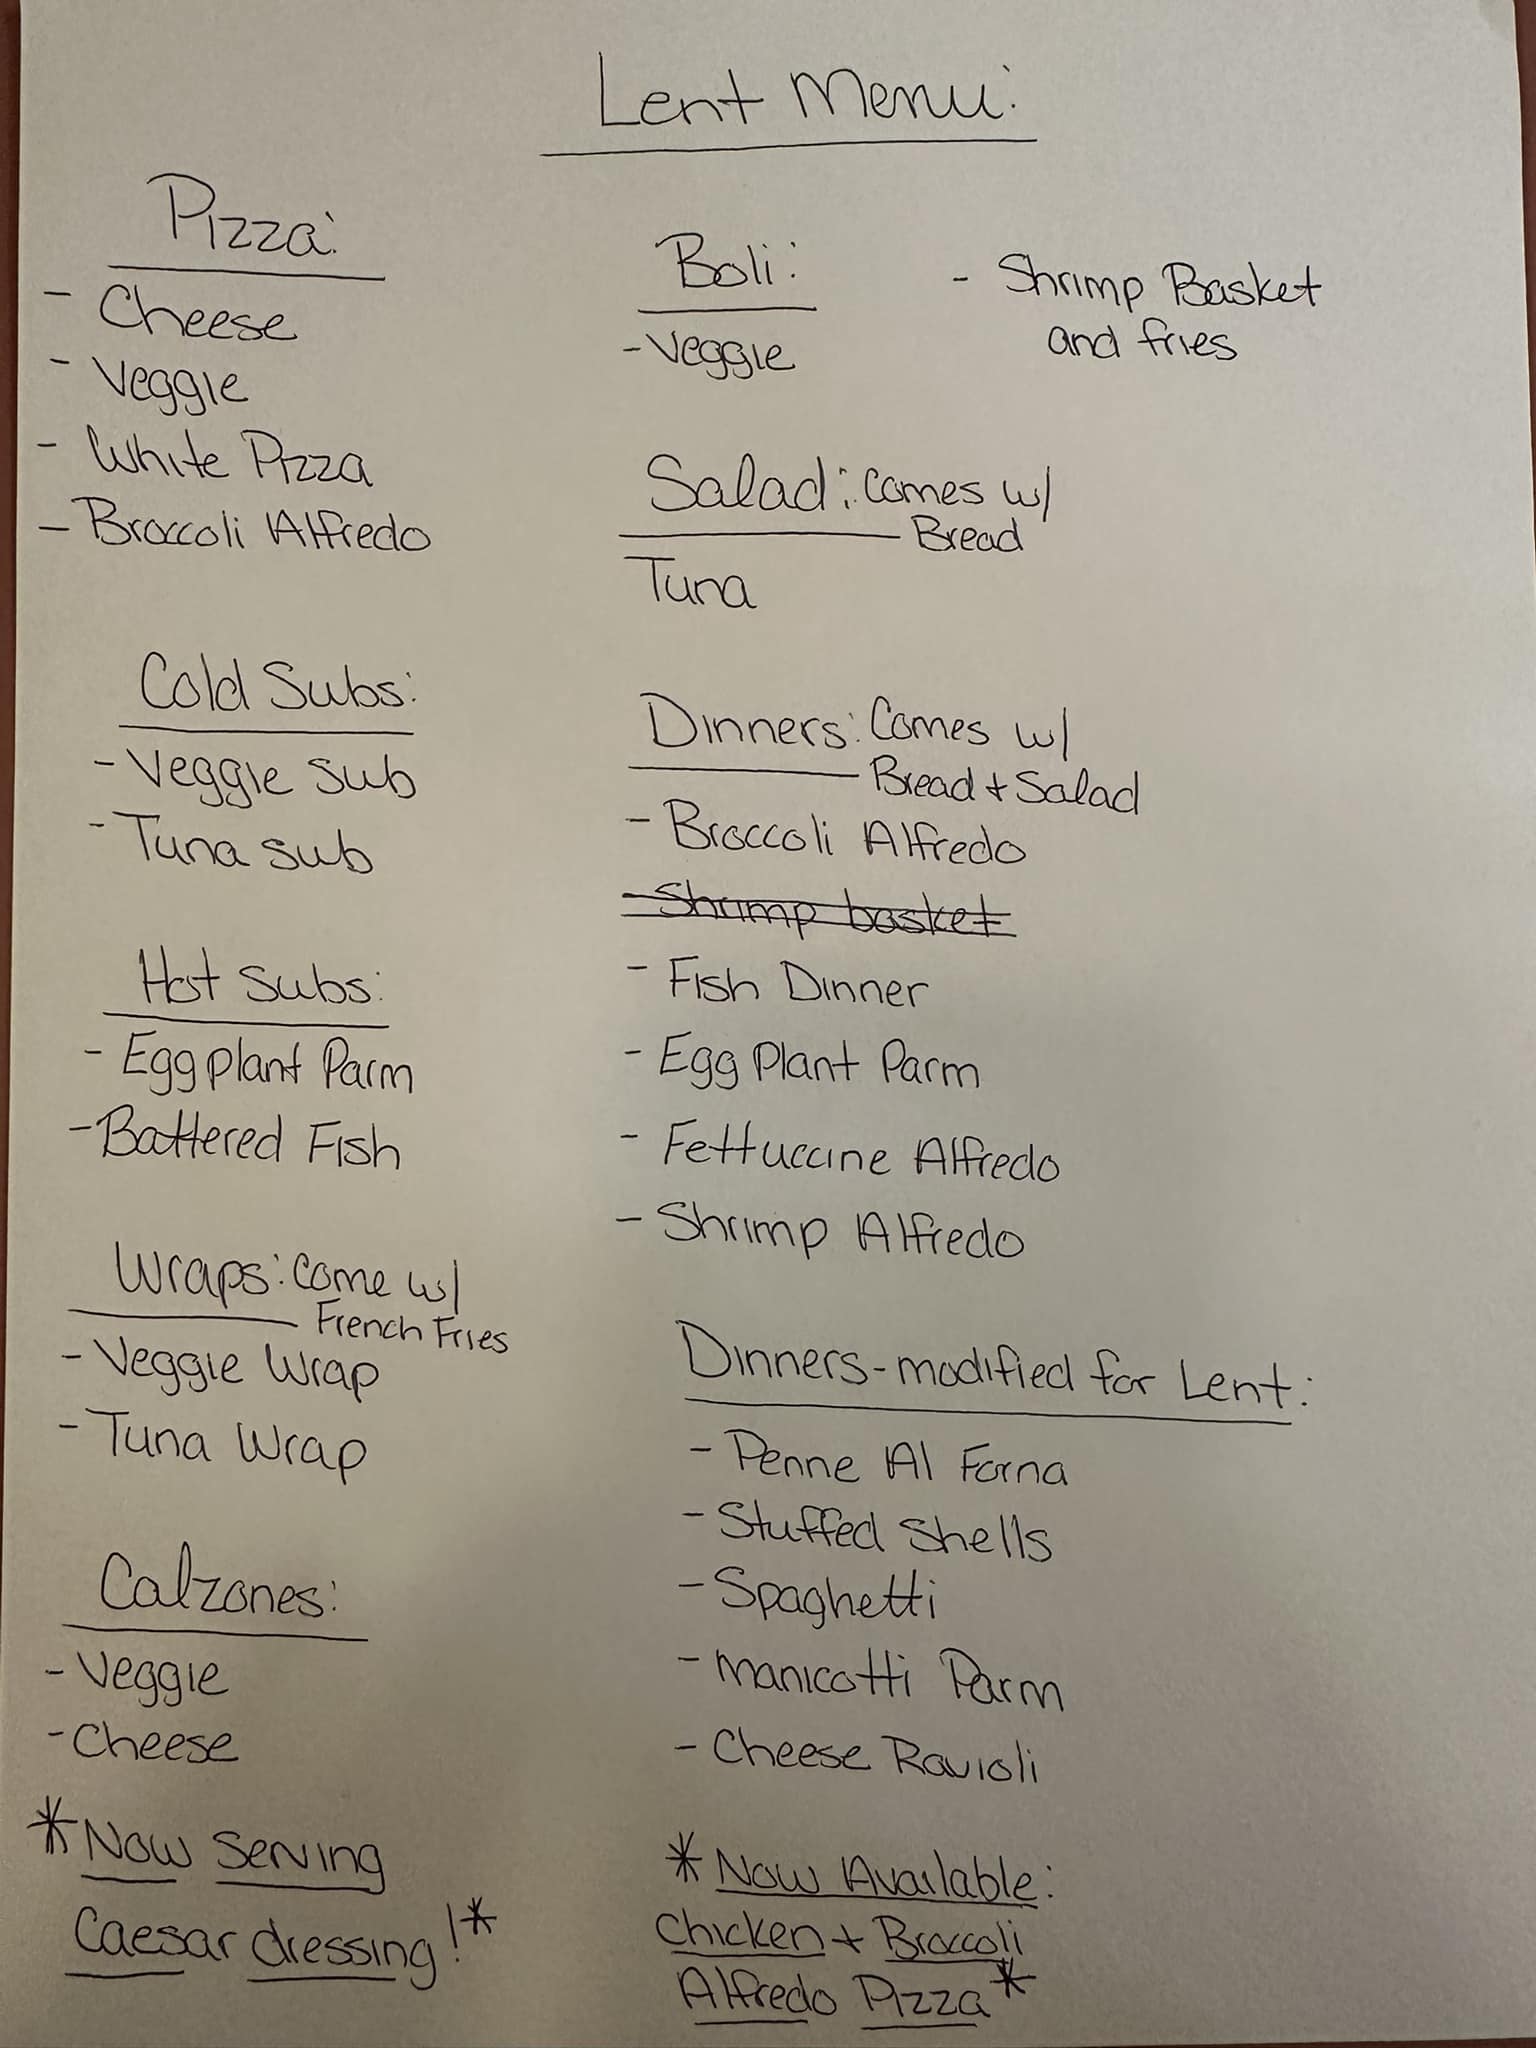 Lent Menu:
Pizza:
- Cheese
- Veggie
- White Pizza
- Broccoli Alfredo
Cold Subs:
- Veggie sub
- Tuna sub
Hot Subs:
- Egg plant Parm
- Battered Fish
Wraps: Come w/
French Fries
- Veggie Wrap
- Tuna Wrap
Calzones:
- Veggie
- Cheese
* Now Serving
Caesar dressing! *
Boli:
- Veggie
- Shrimp Basket
and fries
Salad: Comes w/
Bread
Tuna
Dinners: Comes w/
Bread + Salad
- Broccoli Alfredo
- Shrimp basket
- Fish Dinner
- Egg Plant Parm
- Fettuccine Alfredo
- Shrimp Alfredo
Dinners - modified for Lent:
- Penne Al Forna
- Stuffed Shells
- Spaghetti
- Manicotti Parm
- Cheese Ravioli
* Now Available:
Chicken + Broccoli
Alfredo Pizza *